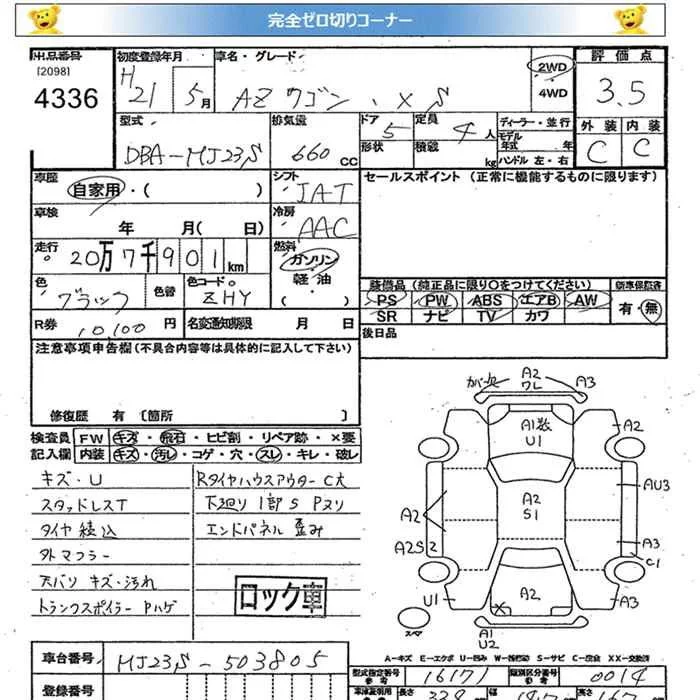 完全ゼロ切りコーナー
出品番号 初度登録年月 車名・グレード 2WD 評価点
[2098]
4336 H21 5月 AZワゴン・XS 4WD 3.5
型式 排気量 ドア 5 定員 4人 ディーラー・並行 外装 内装
DBA-MJ23S 660cc 形状 積載 kg モデル年式 年 C C
ハンドル 左・右
車歴 自家用・( ) シフト IAT セールスポイント (正常に機能するものに限ります)
車検 年 月( 日) 冷房 AAC
走行 20万7千901km 燃料 ガソリン
軽・油
色 ブラック 色替 色コード ZHY 装備品 (純正品に限り○をつけてください) 新車保証書
PS PW ABS エアB AW 有・無
SR ナビ TV カワ
R券 10,100円 名変通知期限 月 日 後日品
注意事項申告欄(不具合内容等は具体的に記入して下さい)
修復歴 有 [箇所 ]
検査員 FW キズ・飛石・ヒビ割・リペア跡・×要
記入欄 内装 キズ・汚レ・コゲ・穴・スレ・キレ・破レ
キズ・U RタイヤハウスアウターC大
スタッドレスT 下廻リ1部S Pヌリ
タイヤ積込 エンドパネル歪み
外マフラー
天バリ キズ・汚れ
トランクスポイラーPハゲ
ロック車
A2 ワレ A3
A1 U1
A2
A2
S1
AU3
A2
A2S2
A3
C1
U1
A2
A3
スペア
A1
U2
A-キズ E-エクボ U-凹み W-補修跡 S-サビ C-腐食 XX-交換済
車台番号 MJ23S-503805
型式指定番号 16171 類別区分番号 0014
登録番号